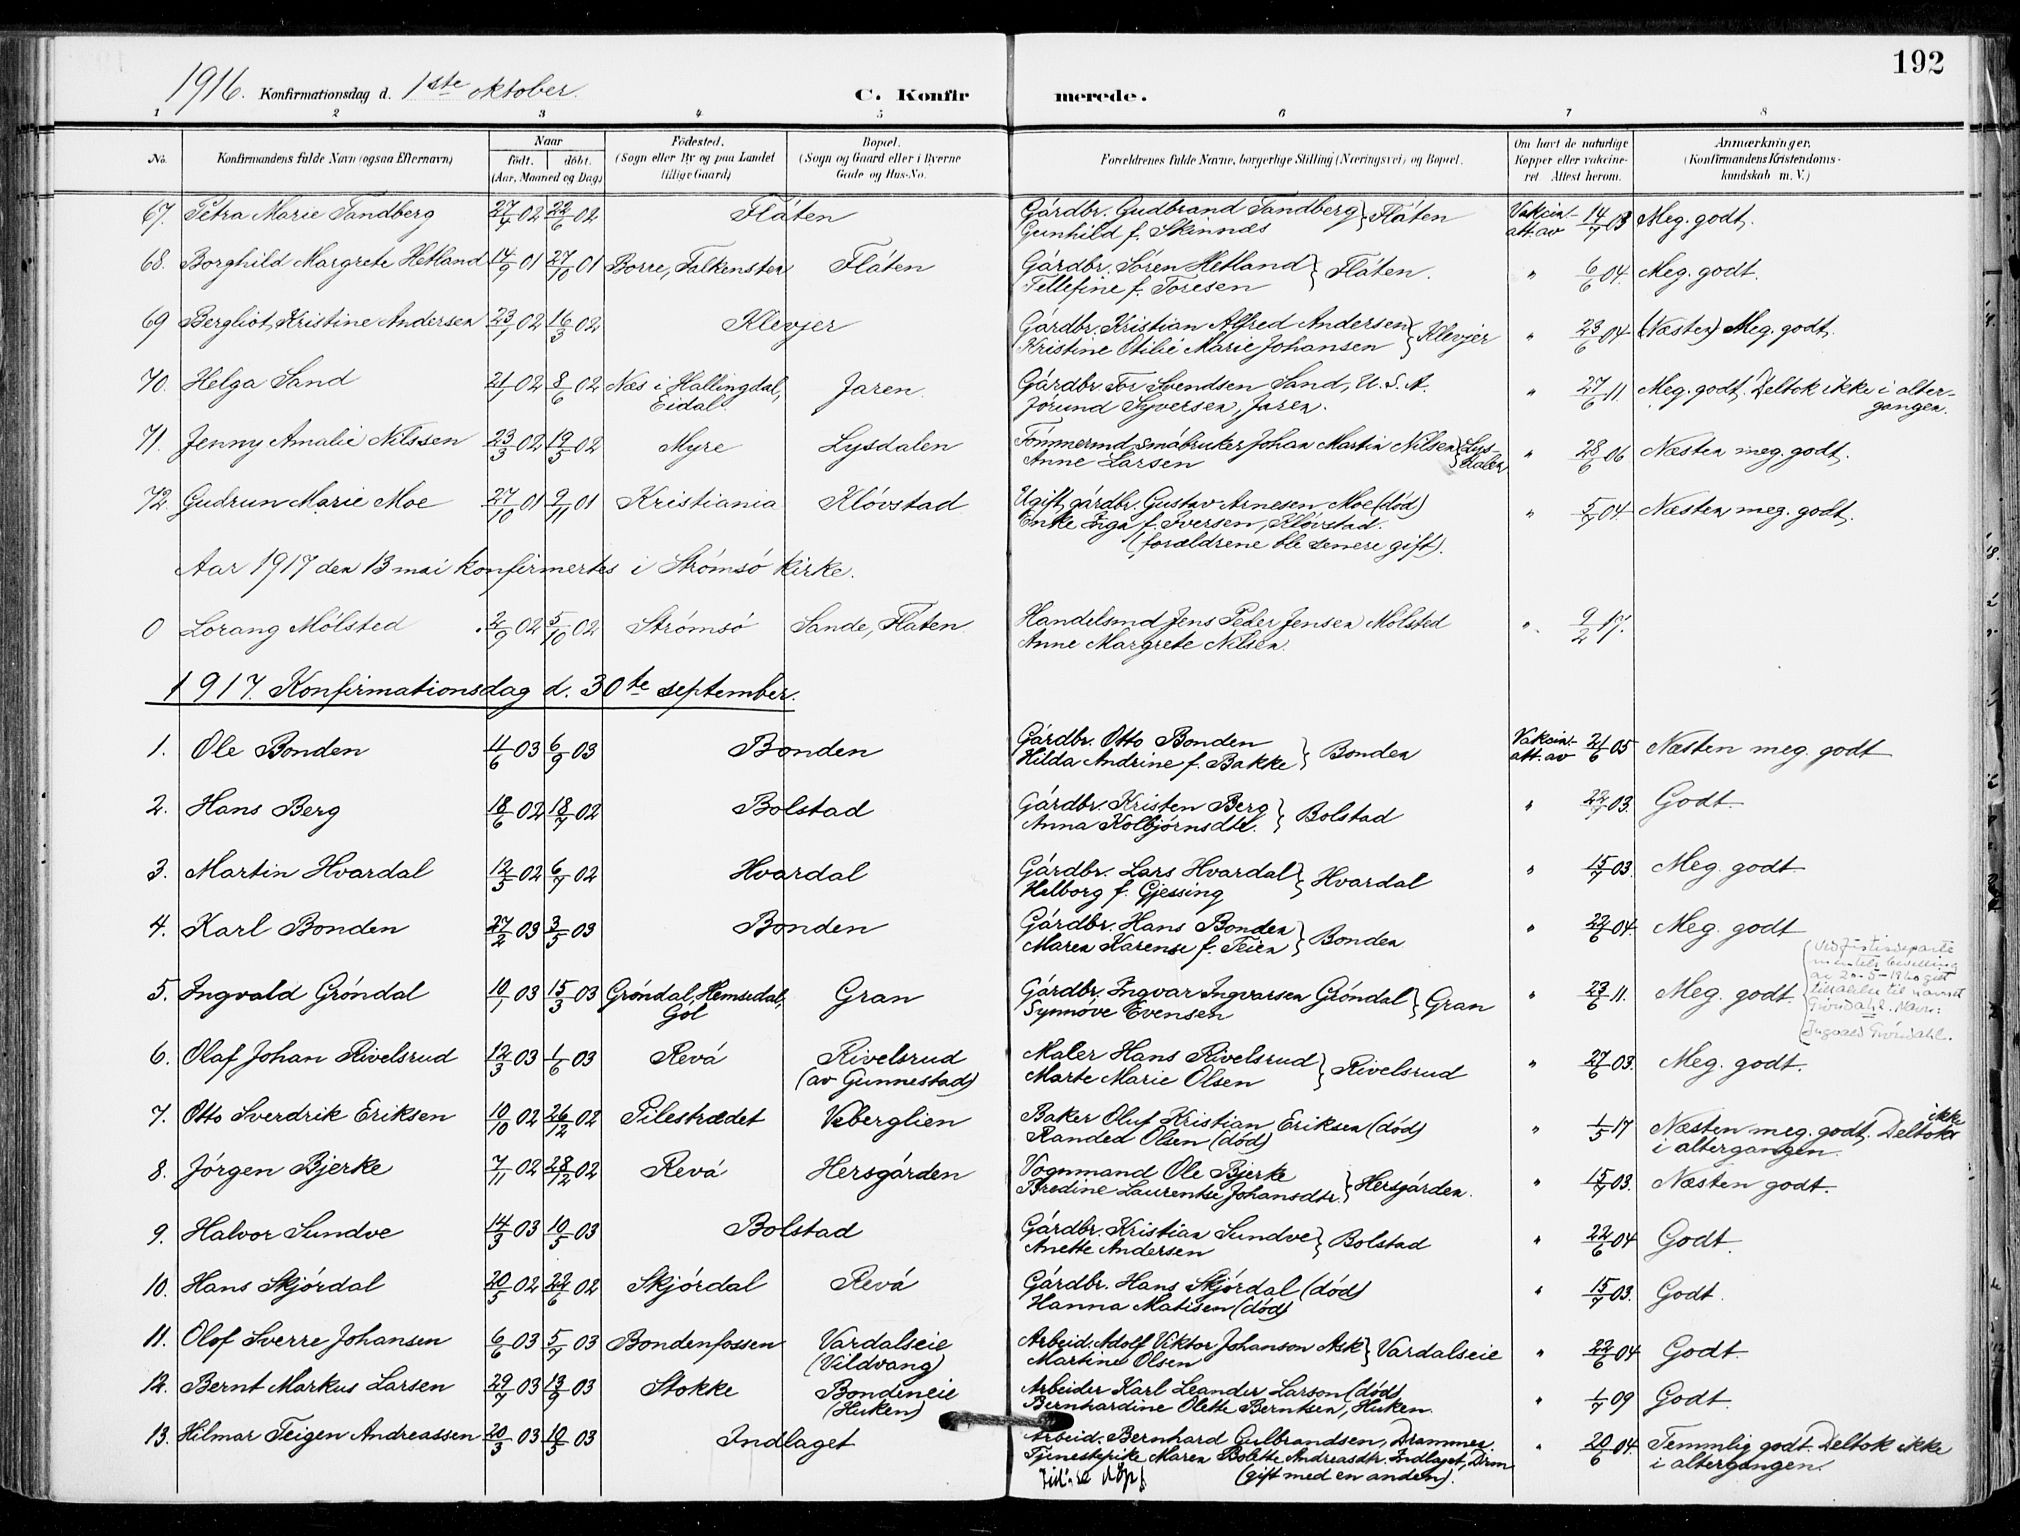 192
1916. Konfirmationsdag d. 1ste oktober.
C. Konfirmerede.
1 2 3 4 5 6 7 8
No. Konfirmandens fulde Navn (ogsaa Efternavn) Naar født. døbt. (Aar, Maaned og Dag) Fødested. (Sogn eller By og paa Landet tillige Gaard) Bopæl. (Sogn og Gaard eller i Byerne Gade og Hus-No. Forældrenes fulde Navne, borgerlige Stilling (Næringsvei) og Bopæl. Om havt de naturlige Kopper eller vakcineret Attest herom. Anmærkninger, (Konfirmandens Kristendomskundskab m. V.)
67. Petra Marie Sandberg 27/4 02 22/6 02 Flåten Gårdbr. Gudbrand Sandberg } Flåten Vakcin.- 14/7 03 Meg. godt.
Gunhild f. Skinnæs att. av
68. Borghild Margrete Hetland 14/9 01 27/10 01 Borre, Falkensten Flåten Gårdbr. Søren Hetland } Flåten. " 6/6 04. Meg. godt.
Tellefine f. Toresen
69 Bergliot Kristine Andersen 23/1 02 16/3 02 Klevjer Gårdbr. Kristian Alfred Andersen } Klevjer " 23/6 04 (Næsten) Meg. godt.
Kristine Otilie Marie Johansen
70. Helga Sand 21/1 02 8/6 02 Næs i Hallingdal, Jaren. Gårdbr. Tor Svendsen Sand, U.S.A. " 27/6 11. Meg. godt. Deltok ikke i alter-
Eidal. Jørund Syversen, Jaren. gangen.
71. Jenny Amalie Nilssen 23/3 02 19/5 02 Myre Lysdalen Tømmermd. småbruker Johan Martin Nilsen } Lys- " 28/6 06 Næsten meg. godt.
Anne Larsen dalen
72. Gudrun Marie Moe 27/10 01 9/11 01 Kristiania Kløvstad Ugift gårdbr. Gustav Arnesen Moe (død) " 5/7 04. Næsten meg. godt.
Enke Inga f. Iversen, Kløvstad.
(forældrene ble senere gift).
Aar 1917 den 13 mai konfirmertes i Strømsø kirke.
0 Lorang Mølsted 2/9 02 5/10 02 Strømsø Sande, Flåten. Handelsmd Jens Peder Jensen Mølsted " 9/2 17.
Anne Margrete Nilsen.
1917. Konfirmationsdag d. 30te september.
1. Ole Bonden 4/6 03 6/9 03 Bonden Gårdbr. Otto Bonden } Bonden Vakcin.- 21/6 05 Næsten meg. godt
Hilda Andrine f. Bakke att. av
2. Hans Berg 18/6 02 18/7 02 Bolstad Gårdbr. Kristen Berg } Bolstad " 22/7 03. Godt.
Anna Kolbjørnsdtr.
3. Martin Hvardal 12/5 02 6/7 02 Hvardal Gårdbr. Lars Hvardal } Hvardal " 15/7 03. Meg. godt
Helborg f. Gjessing
4. Karl Bonden 27/2 03 3/5 03 Bonden Gårdbr. Hans Bonden } Bonden " 22/6 04. Meg. godt
Maren Karense f. Teien
5. Ingvald Grøndal 10/1 03 15/3 03 Grøndal, Hemsedal, Gran Gårdbr. Ingvar Ingvarsen Grøndal } Gran " 23/6 11. Meg. godt.
Gol Synnøve Evensen
ved Justisdeparte
mentets bevilling
av 20-5-1920 gitt
tillatelse til navnet
Grøndahl. Navn:
Ingvald Grøndahl.
6. Olaf Johan Rivelsrud 12/3 03 1/6 03 Revå Rivelsrud Maler Hans Rivelsrud } Rivelsrud " 27/6 03. Meg. godt.
(av Gunnestad) Marte Marie Olsen
7. Otto Sverdrik Eriksen 10/10 02 26/12 02 Pilestrædet Veberglien Baker Oluf Kristian Eriksen (død) " 1/5 17 Næsten meg. godt. Deltok ikke
Randed Olsen (død) i altergangen.
8. Jørgen Bjerke 7/11 02 28/12 02 Revå Hersgården Vognmand Ole Bjerke } Hersgården. " 15/7 03. Næsten godt.
Bredine Laurentse Johansdtr.
9. Halvor Sundve 14/3 03 10/5 03 Bolstad Gårdbr. Kristian Sundve } Bolstad " 22/6 04 Godt.
Anette Andersen
10. Hans Skjørdal 20/5 02 22/6 02 Skjørdal Revå Gårdbr. Hans Skjørdal (død) " 15/7 03. Godt.
Hanna Matisen (død)
11. Olof Sverre Johansen 6/6 03 5/7 03 Bondenfossen Vardalseie Arbeid. Adolf Viktor Johanson Ask } Vardalseie " 22/6 04 Godt.
(Vildvang) Martine Olsen
12. Bernt Markus Larsen 29/7 03 13/9 03 Stokke Bondeneie Arbeider Karl Leander Larson (død) " 1/7 09 Godt.
(Huken) Bernhardine Olette Berntsen, Huken.
13. Hilmar Teigen Andreassen 20/3 03 10/5 03 Indlaget Arbeid. Bernhard Gulbrandsen, Drammen. " 20/6 04. Temmlig godt. Deltok ikke
Tjenestepike Maren Bolette Andreasdtr. Indlaget, Drm i altergangen.
(gift med en anden).